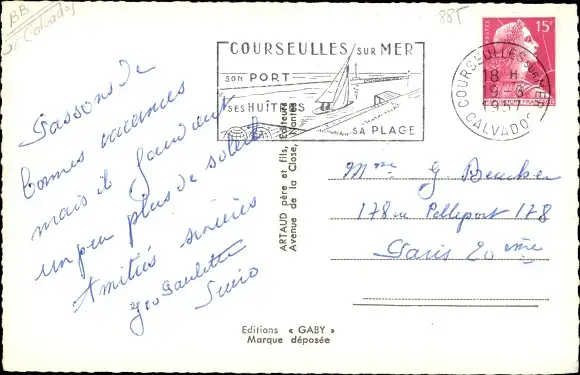 BB
Calvados
88T
COURSEULLES SUR MER
SON PORT
SES HUÎTRES
SA PLAGE
15F
COURSEULLES SUR MER
18 H
9 - 8
1957
CALVADOS
Passons de
bonnes vacances
mais il faudrait
un peu plus de soleil
Amitiés sincères
Geo Paulette
ARTAUD père et fils, Editeurs
Avenue de la Close, Nantes
Mme G
178 rue Pelleport 178
Paris 20ème
Editions « GABY »
Marque déposée